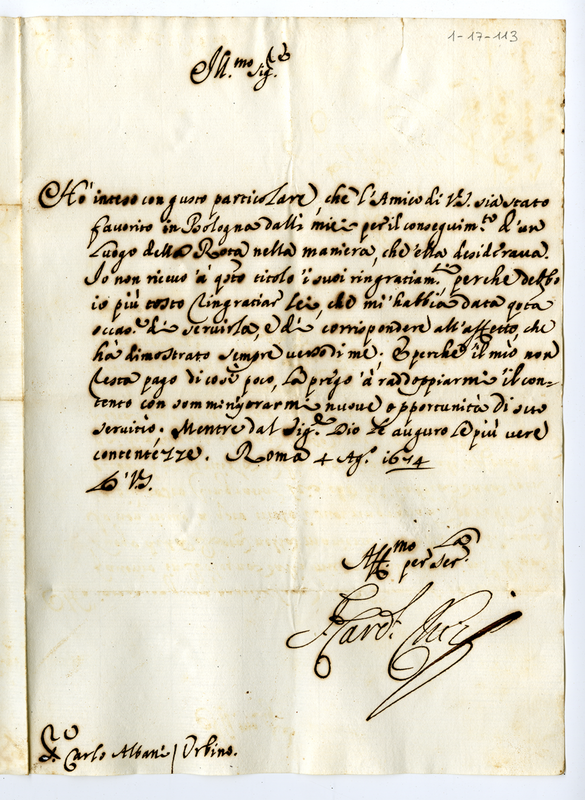 1-17-113
Ill.mo Sig.re
Hò inteso con gusto particolare, che l'Amico di V.S. sia stato
favorito in Bologna dalli miei per il conseguim.to d'un
Luogo della Rota nella maniera, che ella desiderava.
Io non riceuo à q̃sto titolo i suoi ringratiam.ti, perche debbo
io più tosto ringratiar lei, che mi habbia data q̃sta
occas.e di servirla, e di corrispondere all'affetto, che
hà dimostrato sempre verso di me; E perche il mio non
resta pago di così poco, La prego à raddoppiarmi il con-
tento con somministrarmi nuove opportunità di suo
servitio. Mentre dal Sig.re Dio le auguro le più vere
contentezze. Roma 4 Ag.o 1674
V.S.
Aff.mo per ser.la
Il Card.
Carlo Albani / Urbino.